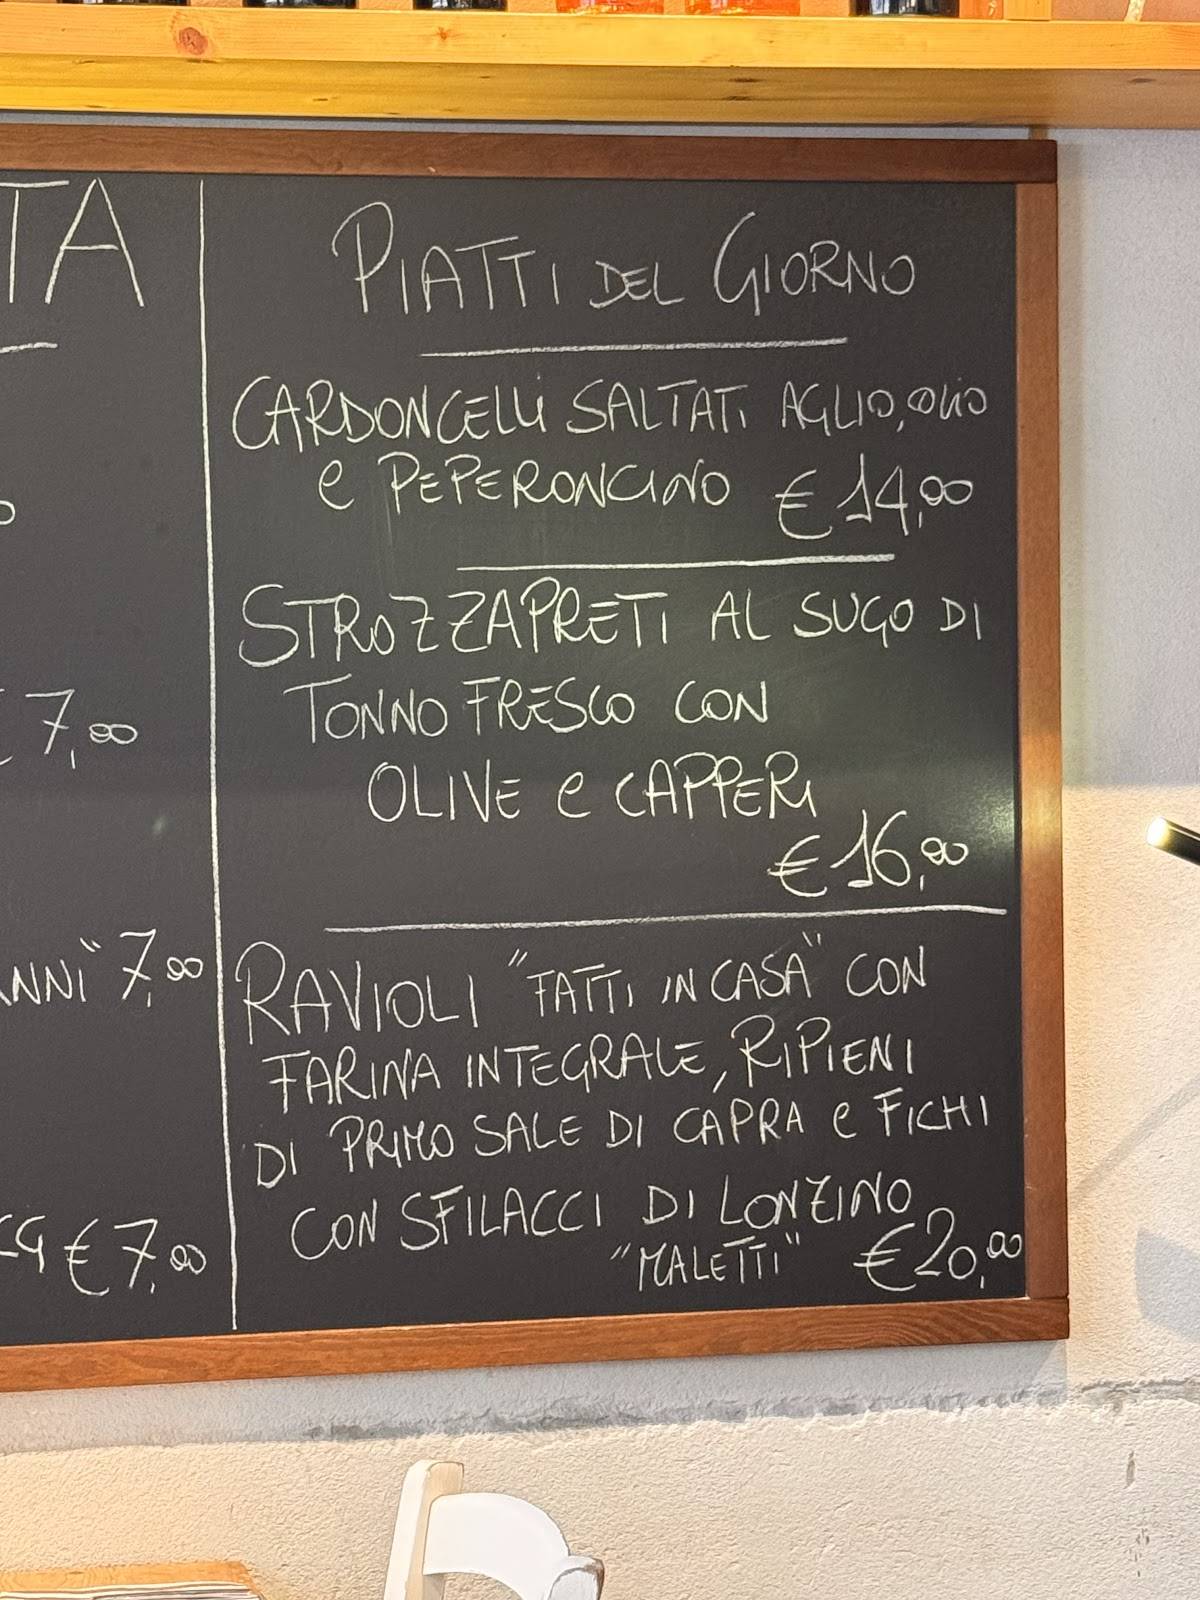 TA
7,00
ANNI" 7,00
€ 7,00
PIATTI DEL GIORNO
CARDONCELLI SALTATI AGLIO, OLIO
e PEPERONCINO €14,00
STROZZAPRETI AL SUGO DI
TONNO FRESCO CON
OLIVE e CAPPERI
€16,00
RAVIOLI "FATTI IN CASA" CON
FARINA INTEGRALE, RIPIENI
DI PRIMO SALE DI CAPRA e FICHI
CON SFILACCI DI LONZINO
"MALETTI" €20,00